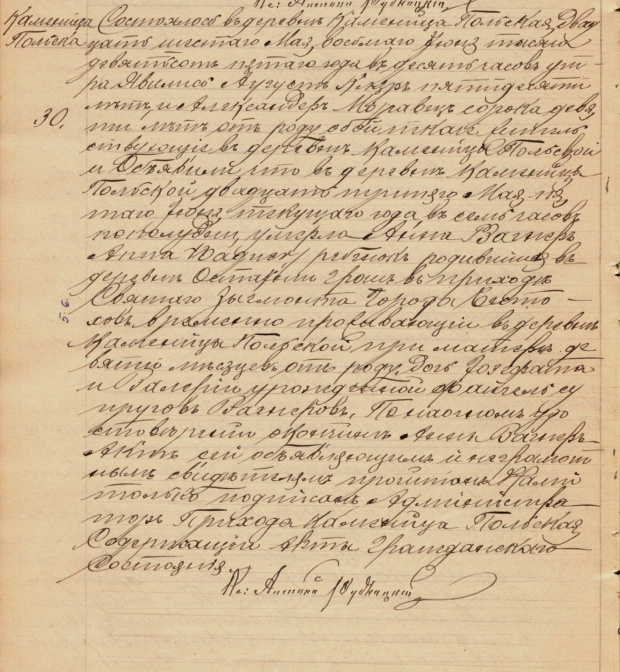 Каменица Состоялось въ деревнѣ Каменица Польская, Двад
Польска цать шестаго Мая, восьмаго Іюня тысяча
девятьсотъ пятаго года въ десять часовъ ут
ра Явились Августъ пятидесяти
30. лѣтъ, и Александеръ Моравецъ сорока девя
ти лѣтъ отъ роду, оба ткачи житель
ствующіе въ деревнѣ Каменицы Польской
и Объявили, что въ деревнѣ Каменицы
Польской двадцать третяго Мая, пя
таго Іюня текущаго года, въ семь часовъ
пополудни, умерла Анна Вагнеръ
/Anna Wagner/ ребенокъ родившійся въ
деревнѣ Остатни Грошъ въ приходѣ
Святаго Зыгмонта города Често-
5.6.
ховъ, временно проживающій въ деревнѣ
Каменицы Польской при матери, де
вяти мѣсяцевъ отъ роду, Дочь Іозефата
и Валеріи урожденной су
пруговъ Вагнеровъ. По наочномъ удо
стовѣреніи о кончинѣ Анны Вагнеръ
Актъ сей объявляющимъ и неграмот
нымъ свидѣтелямъ прочитанъ, Нами
только подписанъ. Администра
торъ Прихода Каменица Польская,
Содержащій Акты Гражданскаго
Состоянія.
Кс: Антоній Рудницкій